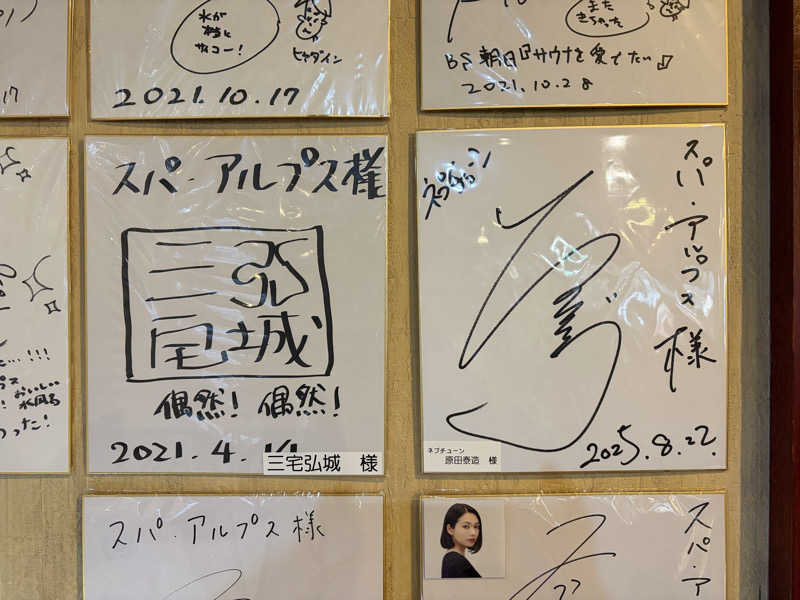 水が
本当に
サイコー!
ヒャダイン
2021.10.17
また
きちゃった
BS朝日『サウナを愛でたい』
2021.10.28
17
スパ・アルプス様
三宅
弘城
偶然! 偶然!
2021.4.14
三宅弘城 様
ネプチューン
スパ・アルプス様
2025.8.22.
ネプチューン
原田泰造 様
おいしい
スパ・アルプス様
スパ・ア